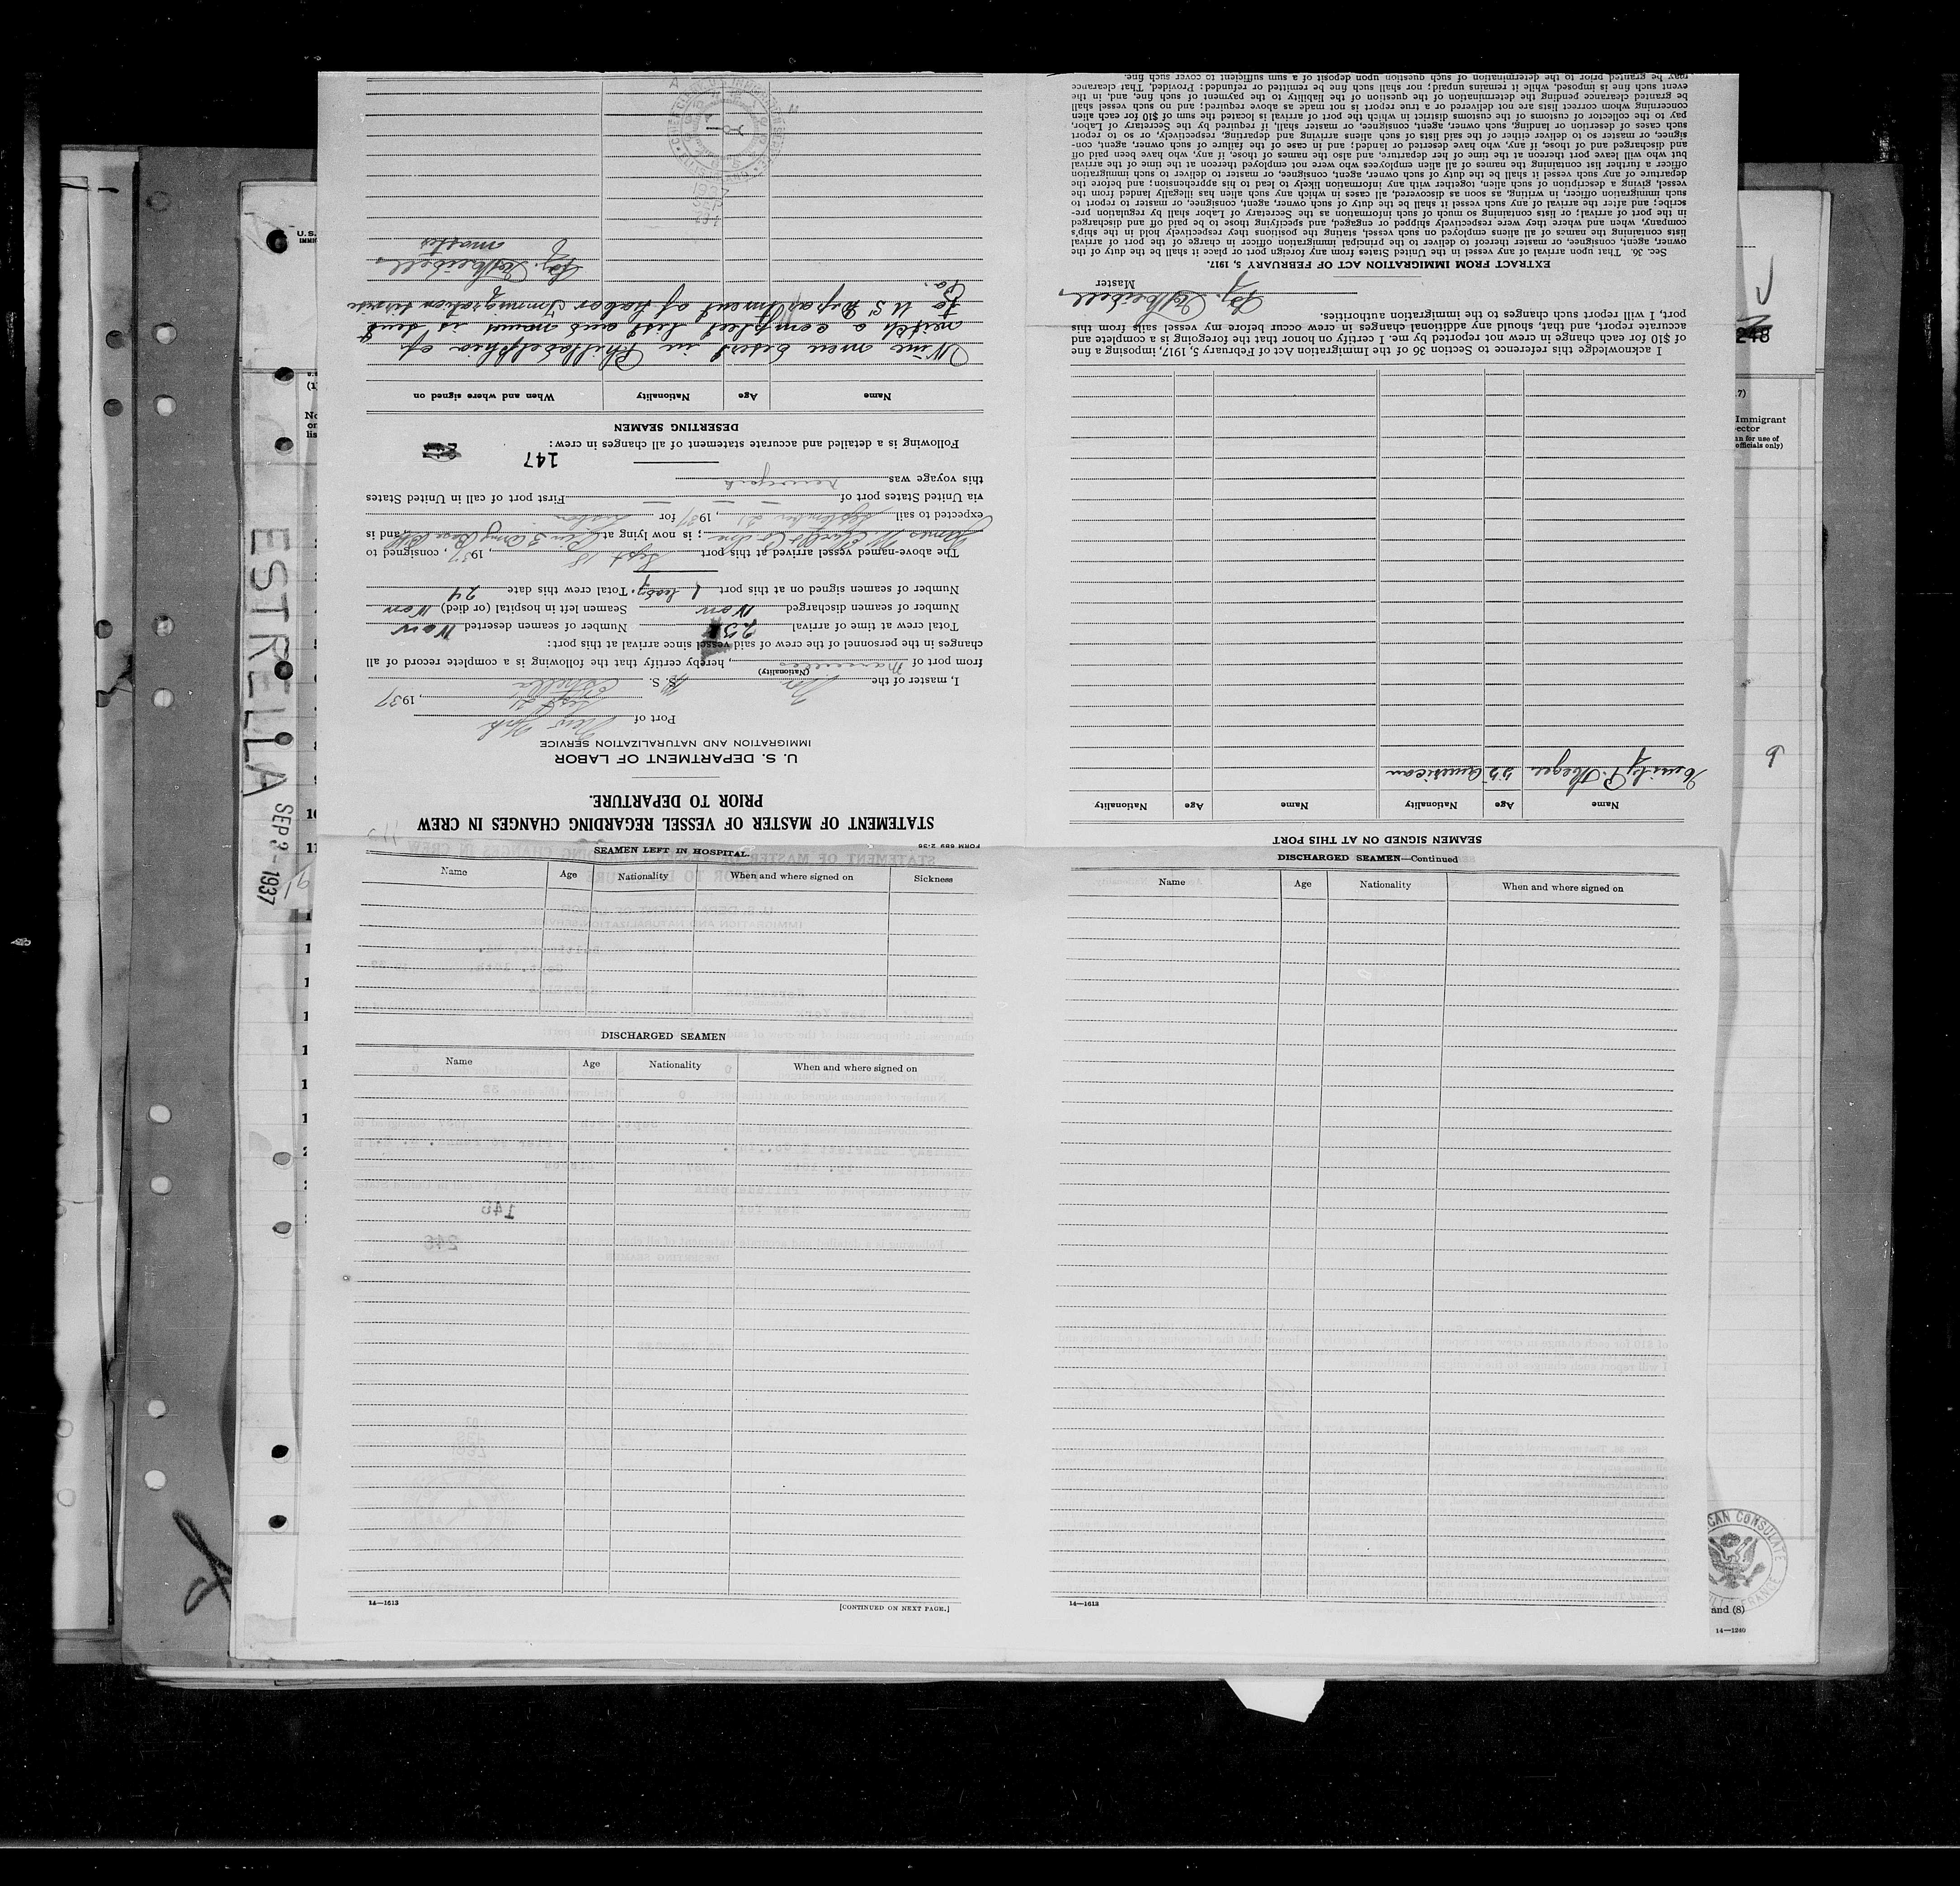 STATEMENT OF MASTER OF VESSEL REGARDING CHANGES IN CREW
PRIOR TO DEPARTURE.
U. S. DEPARTMENT OF LABOR
IMMIGRATION AND NATURALIZATION SERVICE
Port of New York
Sept 21, 1937
I, master of the Nor. S. S. Estrella
(Nationality)
from port of, hereby certify that the following is a complete record of all
changes in the personnel of the crew of said vessel since arrival at this port:
Total crew at time of arrival 23 Number of seamen deserted Non
Number of seamen discharged Non Seamen left in hospital (or died) Non
Number of seamen signed on at this port 1 Total crew this date 24
The above-named vessel arrived at this port Sept 18, 1937, consigned to
James; is now lying at Army Base, and is
expected to sail September 21, 1937 for Lisbon
via United States port of — — First port of call in United States
this voyage was newyork
147
Following is a detailed and accurate statement of all changes in crew:
DESERTING SEAMEN
Name Age Nationality When and where signed on
Nine men desert in Philladelphia of
witch a complet list and names is sent
to U S Department of Labor Immigration
Pa.
master
1937
SEP
EXTRACT FROM IMMIGRATION ACT OF FEBRUARY 5, 1917.
SEAMEN SIGNED ON AT THIS PORT
Name Age Nationality Name Age Nationality
Emily P. 55 American
I acknowledge this reference to Section 36 of the Immigration Act of February 5, 1917, imposing a fine
of $10 for each change in crew not reported by me. I certify on honor that the foregoing is a complete and
accurate report, and that, should any additional changes in crew occur before my vessel sails from this
port, I will report such changes to the immigration authorities.
Master
Sec. 36. That upon arrival of any vessel in the United States from any foreign port or place it shall be the duty of the
owner, agent, consignee, or master thereof to deliver to the principal immigration officer in charge of the port of arrival
lists containing the names of all aliens employed on such vessel, stating the positions they respectively hold in the ship's
company, when and where they were respectively shipped or engaged, and specifying those to be paid off and discharged
in the port of arrival; or lists containing so much of such information as the Secretary of Labor shall by regulation pre-
scribe; and after the arrival of any such vessel it shall be the duty of such owner, agent, consignee, or master to report to
such immigration officer, in writing, as soon as discovered, all cases in which any such alien has illegally landed from the
vessel, giving a description of such alien, together with any information likely to lead to his apprehension; and before the
departure of any such vessel it shall be the duty of such owner, agent, consignee, or master to deliver to such immigration
officer a further list containing the names of all alien employees who were not employed thereon at the time of the arrival
but who will leave port thereon at the time of her departure, and also the names of those, if any, who have been paid off
and discharged and of those, if any, who have deserted or landed; and in case of the failure of such owner, agent, con-
signee, or master so to deliver either of the said lists of such aliens arriving and departing, respectively, or so to report
such cases of desertion or landing, such owner, agent, consignee, or master shall, if required by the Secretary of Labor,
pay to the collector of customs of the customs district in which the port of arrival is located the sum of $10 for each alien
concerning whom correct lists are not delivered or a true report is not made as above required; and no such vessel shall
be granted clearance pending the determination of the question of the liability to the payment of such fine, and, in the
event such fine is imposed, while it remains unpaid; nor shall such fine be remitted or refunded: Provided, That clearance
may be granted prior to the determination of such question upon deposit of a sum sufficient to cover such fine.
FORM 689 2-36
SEAMEN LEFT IN HOSPITAL.
Name Age Nationality When and where signed on Sickness
DISCHARGED SEAMEN
Name Age Nationality When and where signed on
146
14—1613
[CONTINUED ON NEXT PAGE.]
DISCHARGED SEAMEN—Continued
Name Age Nationality When and where signed on
14—1613
ESTRELLA
SEP 3-1937
248
Immigrant
officials only)
CAN CONSULATE
FRANCE
and (8)
14—1240